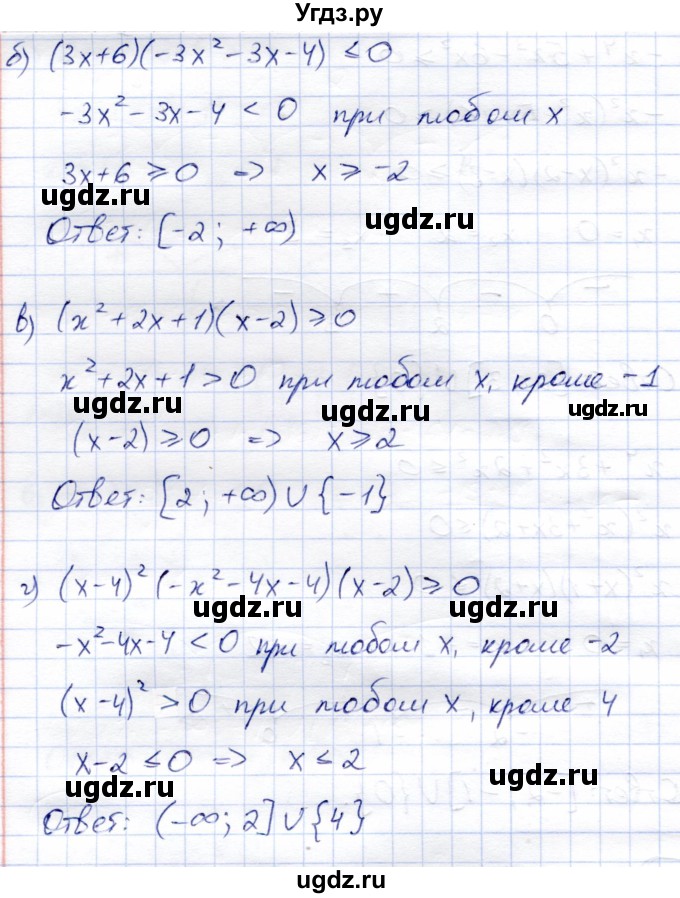 Угдз.ру
б) (3x+6)(-3x² - 3x - 4) ≤ 0
-3x² - 3x - 4 < 0 при любом x
3x+6 ≥ 0 => x ≥ -2
ugdz.ru ugdz.ru
Ответ: [-2; +∞)
ugdz.ru
в) (x² + 2x + 1)(x-2) ≥ 0
x² + 2x + 1 > 0 при любом x, кроме -1
ugdz.ru ugdz.ru ugdz.ru
(x-2) ≥ 0 => x ≥ 2
Ответ: [2; +∞) ∪ {-1}
ugdz.ru
г) (x-4)² (-x² - 4x - 4)(x-2) ≥ 0
ugdz.ru ugdz.ru
-x² - 4x - 4 < 0 при любом x, кроме -2
(x-4)² > 0 при любом x, кроме 4
x-2 ≤ 0 => x ≤ 2
ugdz.ru ugdz.ru
Ответ: (-∞; 2] ∪ {4}
ugdz.ru